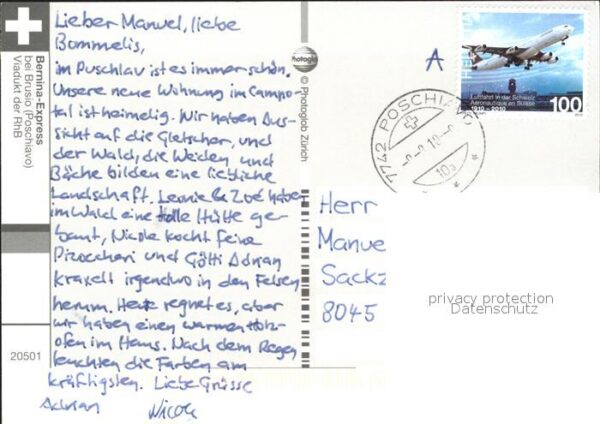 Bernina-Express
bei Brusio (Poschiavo)
Viadukt der RhB
20501
Lieber Manuel, liebe
Bommelis,
im Puschlav ist es immer schön.
Unsere neue Wohnung im Campo-
tal ist heimelig. Wir haben Aus-
sicht auf die Gletscher, und
der Wald, die Weiden und
Bäche bilden eine liebliche
Landschaft. Leonie & Zoé haben
im Wald eine tolle Hütte ge-
baut, Nicole kocht feine
Pizoccheri und Götti Adrian
kraxelt irgendwo in den Felsen
herum. Heute regnet es, aber
wir haben einen warmen Holz-
ofen im Haus. Nach dem Regen
leuchten die Farben am
kräftigsten. Liebe Grüsse
Adrian Nicole
Photoglob
© Photoglob Zürich
A
7742 POSCHIAVO
HELVETIA
Luftfahrt in der Schweiz
Aéronautique en Suisse
1910-2010
100
Herr
Manue
Sackz
8045
privacy protection
Datenschutz